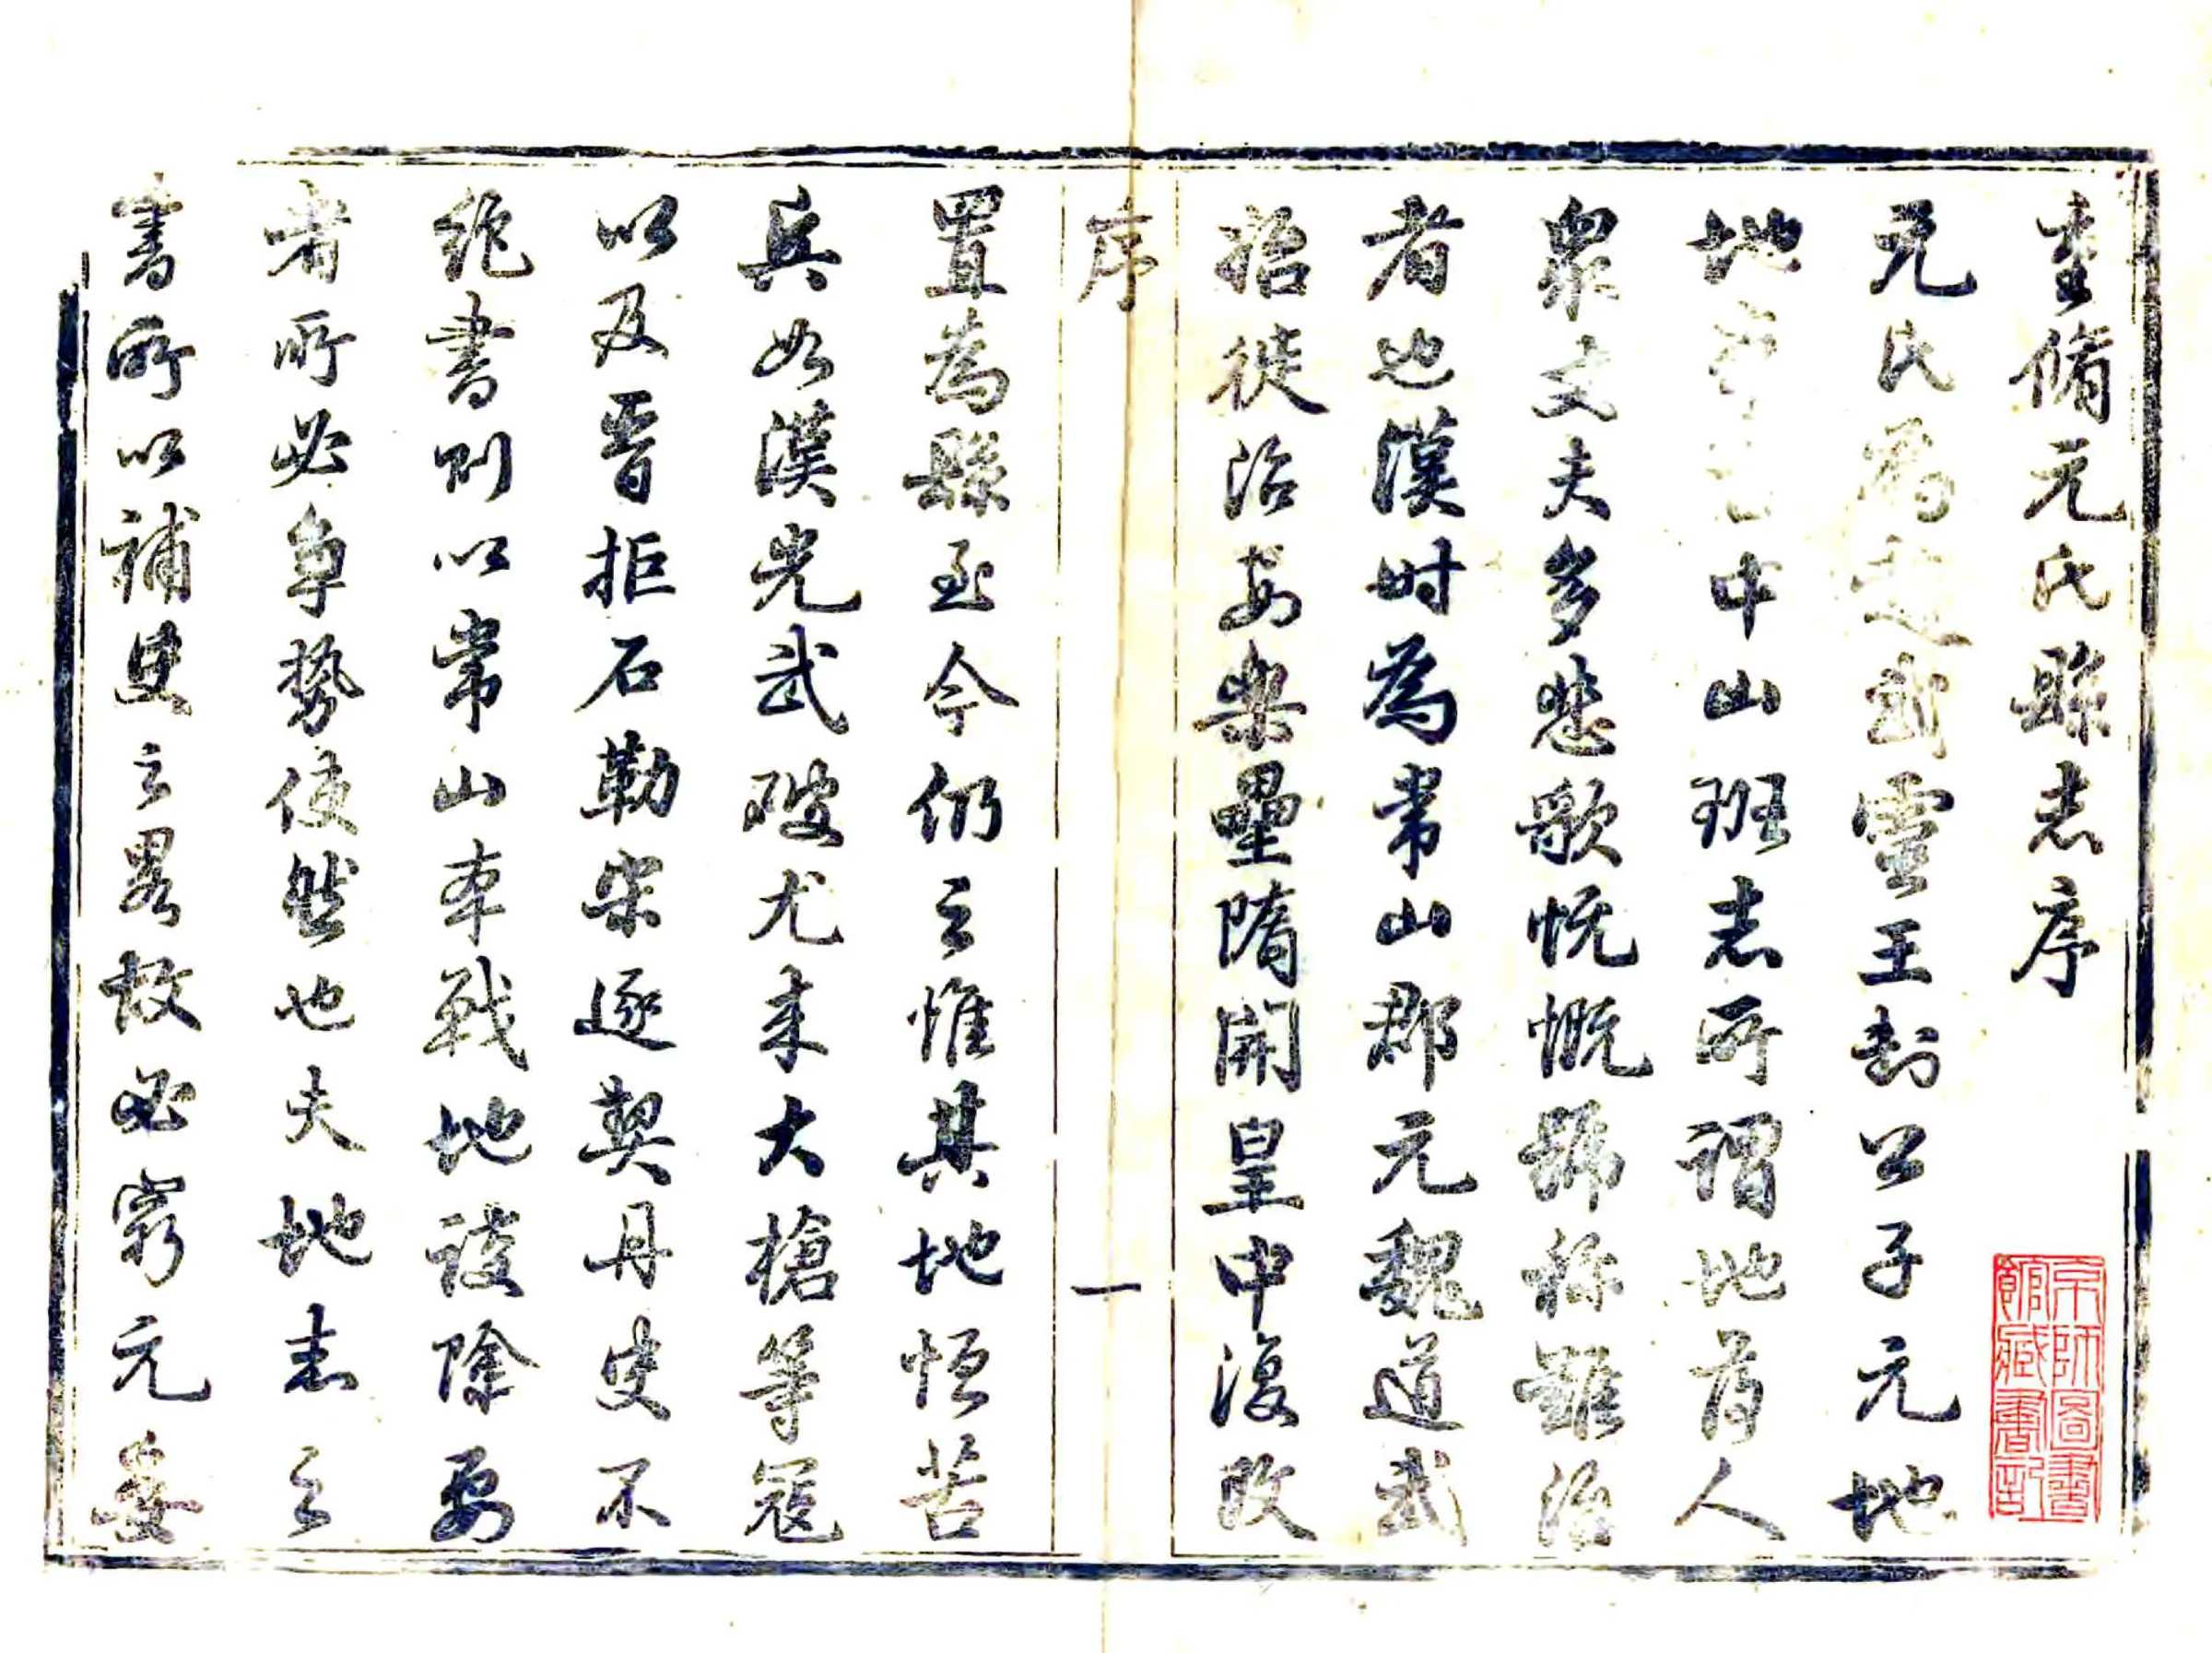 重脩元氏縣志序
元氏為趙武靈王封公子元地
地中山班志所謂地薄人
衆丈夫多悲歌忼慨號稱難治
者也漢時為常山郡元魏道武
始徙治安樂壘隋開皇中復改
序
一
置為縣至今仍之惟其地恒苦
兵如漢光武破尤来大槍等寇
以及晉拒石勒宋逐契丹史不
絶書則以常山本戰地該除要
者所必争勢使然也夫地志之
書所以補史之畧故必窮元委
京師圖書館藏書記